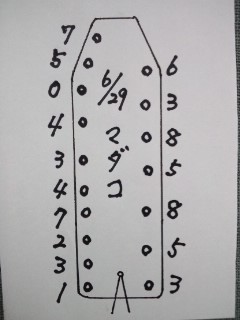 7
5
0
4
3
4
7
2
3
1
6/29
マダコ
6
3
8
5
8
5
3